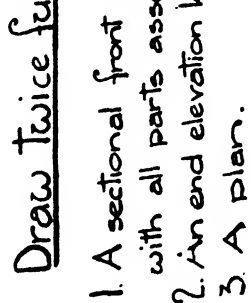 Draw twice
1. A sectional front
with all parts
2. An end elevation
3. A plan.